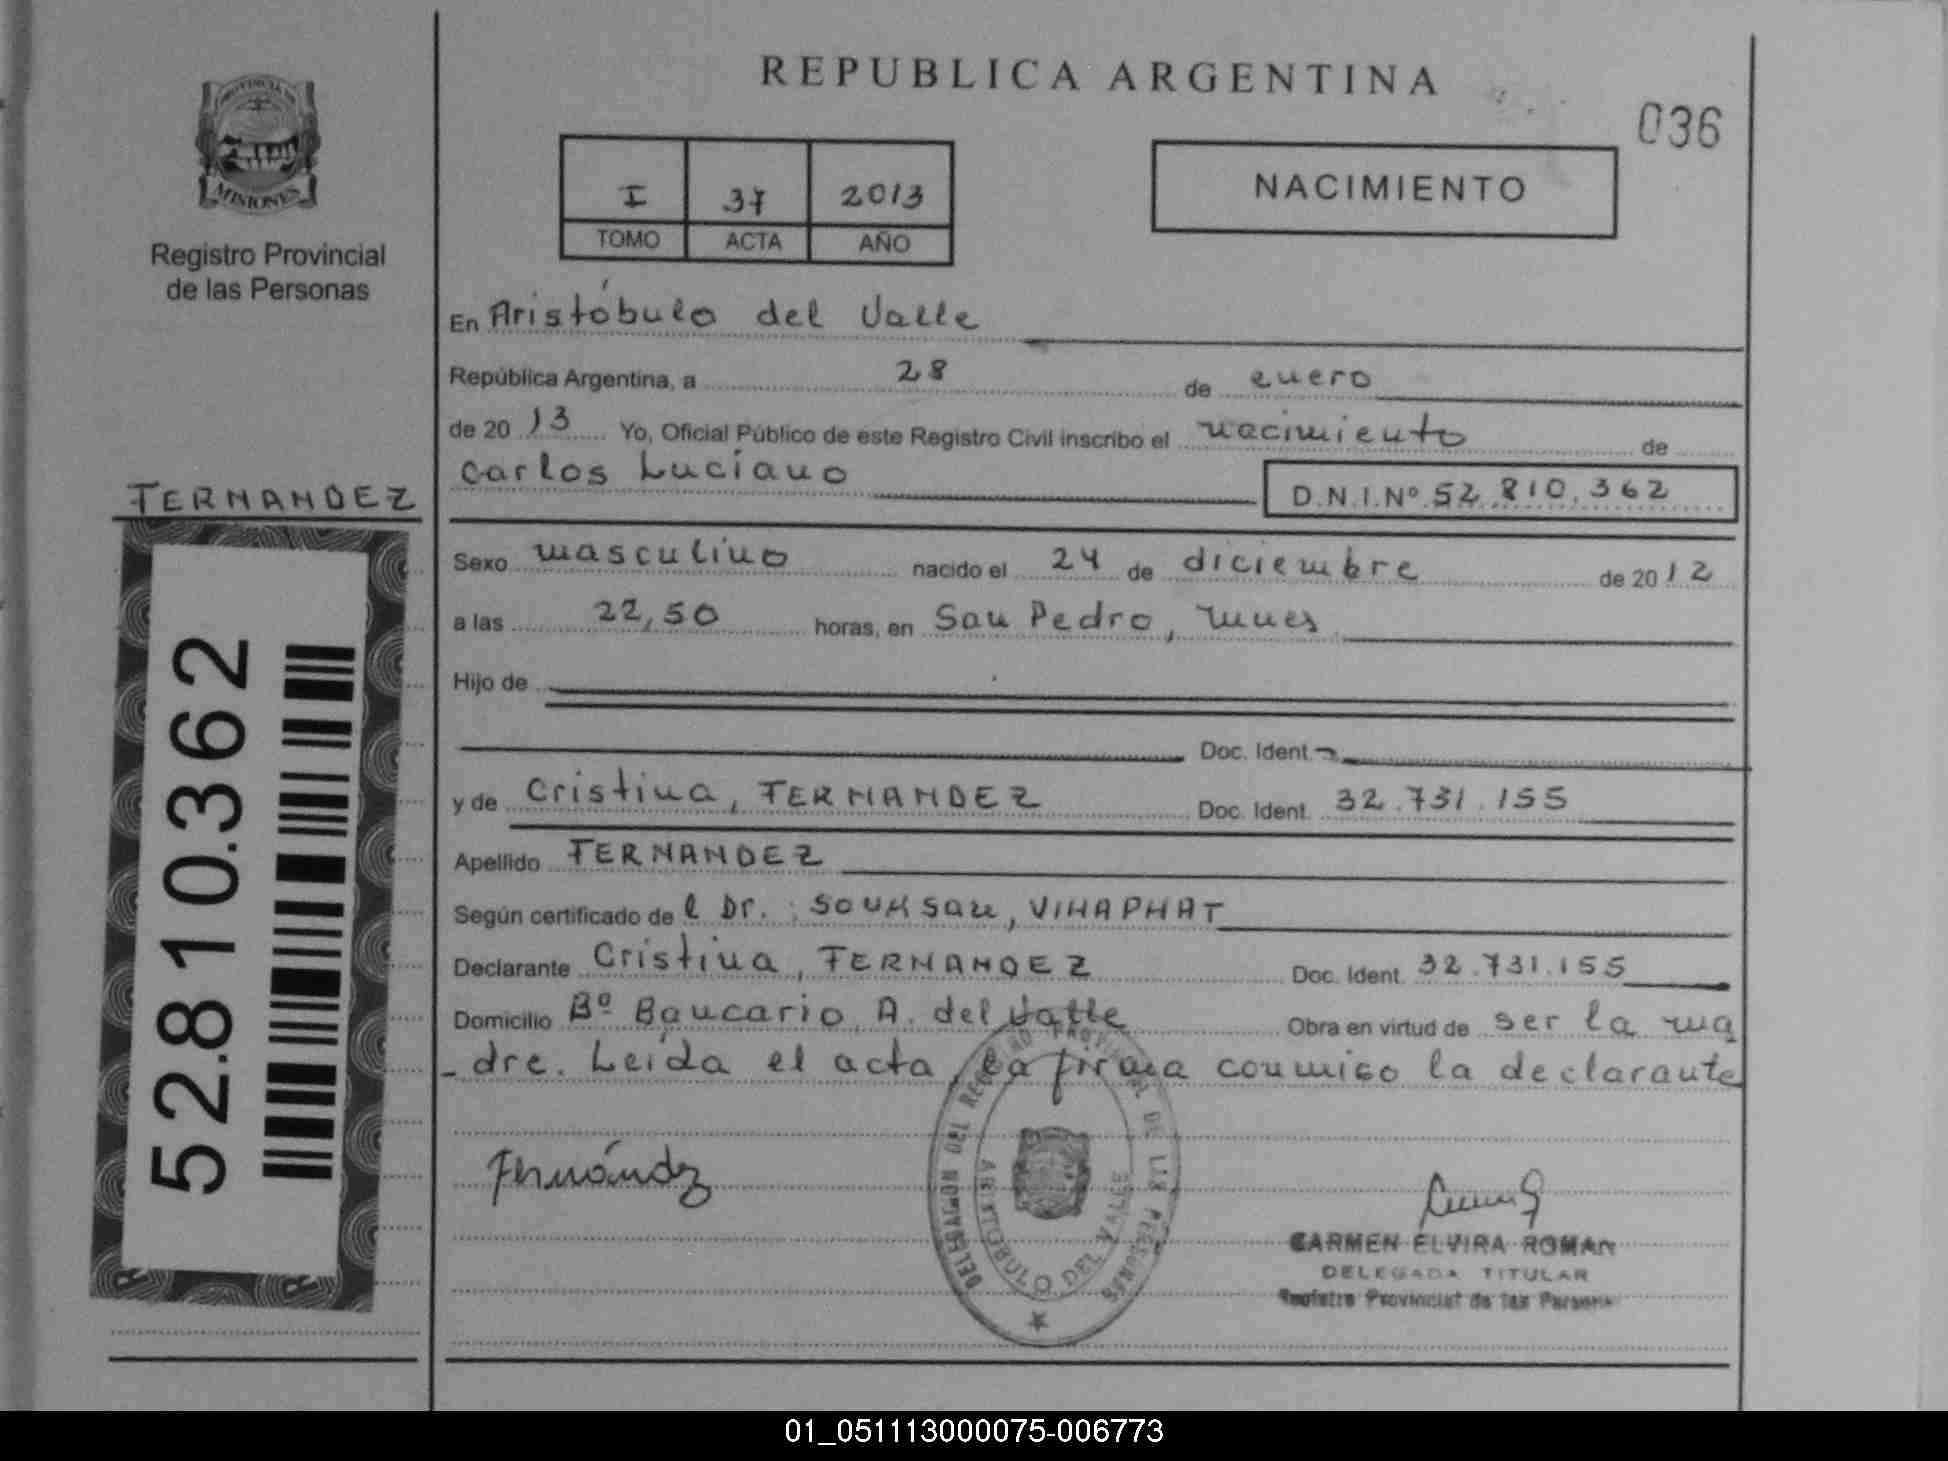 REPUBLICA ARGENTINA
036
PROVINCIA DE
MISIONES
Registro Provincial
de las Personas
I 37 2013
TOMO ACTA AÑO
NACIMIENTO
En Aristóbulo del Valle
República Argentina, a 28 de enero
de 2013 Yo, Oficial Público de este Registro Civil inscribo el nacimiento de
Carlos Luciano D.N.I.Nº 52.810.362
FERNANDEZ
52.810.362
Sexo masculino nacido el 24 de diciembre de 2012
a las 22,50 horas, en San Pedro, Mnes
Hijo de
Doc. Ident.
y de Cristina, FERNANDEZ Doc. Ident. 32.731.155
Apellido FERNANDEZ
Según certificado de l Dr. : SOUKSAN, VIHAPHAT
Declarante Cristina, FERNANDEZ Doc. Ident. 32.731.155
Domicilio Bº Bancario, A. del Valle Obra en virtud de ser la ma
- dre. Leída el acta, la firma conmigo la declarante
Fernández
DELEGACION DEL REGISTRO PROVINCIAL DE LAS PERSONAS
ARISTOBULO DEL VALLE
CARMEN ELVIRA ROMAN
DELEGADA TITULAR
Registro Provincial de las Personas
01_051113000075-006773